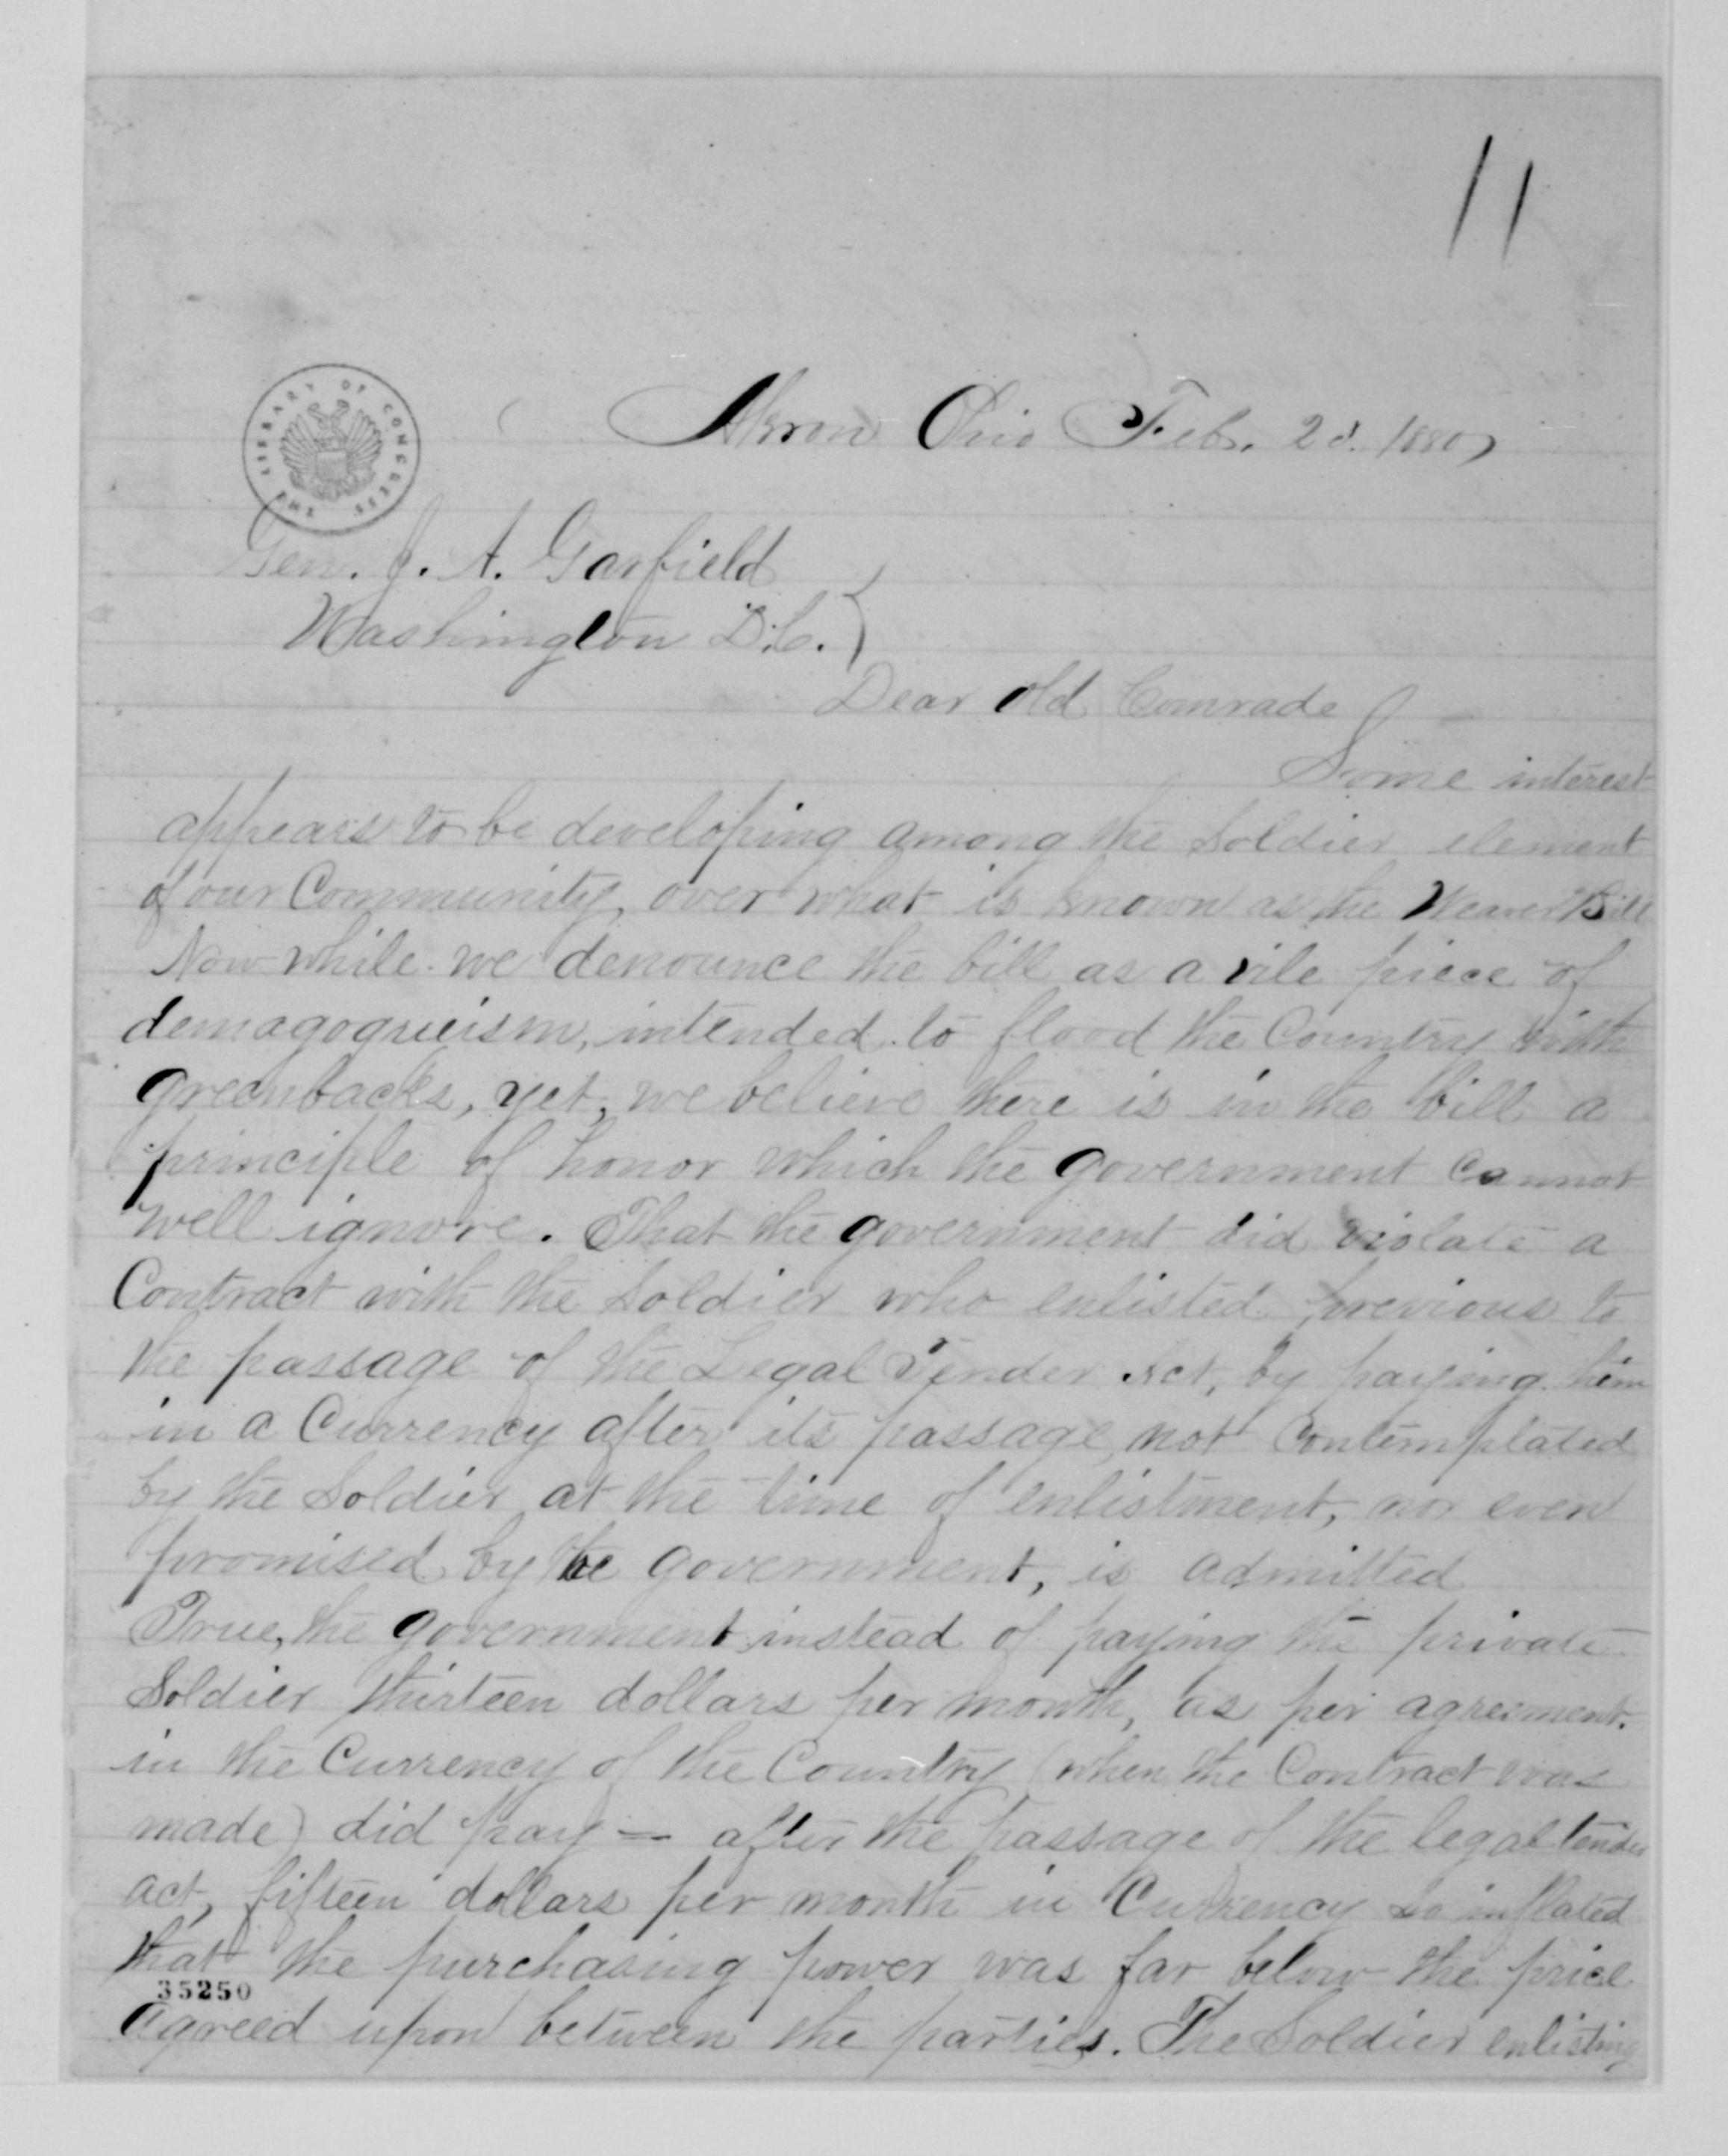 11
Akron Ohio Feb. 2d. 1880
THE LIBRARY OF CONGRESS
Gen. J. A. Garfield
Washington D.C.
Dear Old Comrade
Some interest
appears to be developing among the Soldier element
of our Community, over what is known as the Weaver Bill
Now while we denounce the bill as a vile piece of
demagogueism, intended to flood the Country with
greenbacks, yet, we believe there is in the bill a
principle of honor which the government cannot
well ignore. That the government did violate a
Contract with the Soldier who enlisted previous to
the passage of the Legal Tender Act, by paying him
in a Currency after its passage, not Contemplated
by the Soldier at the time of enlistment, nor even
promised by the government, is admitted
True, the government instead of paying the private
Soldier thirteen dollars per month, as per agreement.
in the Currency of the Country (when the Contract was
made) did pay — after the passage of the legal tender
act, fifteen dollars per month in Currency so inflated
that the purchasing power was far below the price
35250
agreed upon between the parties. The Soldier enlisting